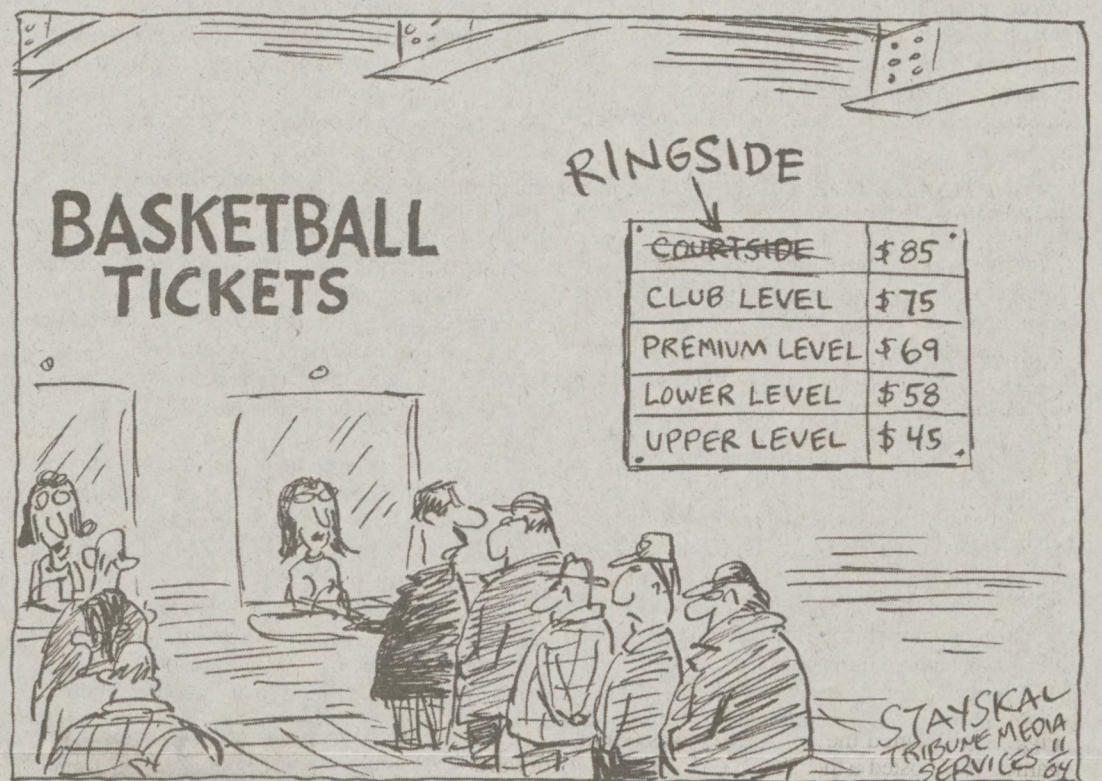 RINGSIDE
BASKETBALL
TICKETS
COURTSIDE $85
CLUB LEVEL $75
PREMIUM LEVEL $69
LOWER LEVEL $58
UPPER LEVEL $45
STAYSKAL
TRIBUNE MEDIA
SERVICES 11
04